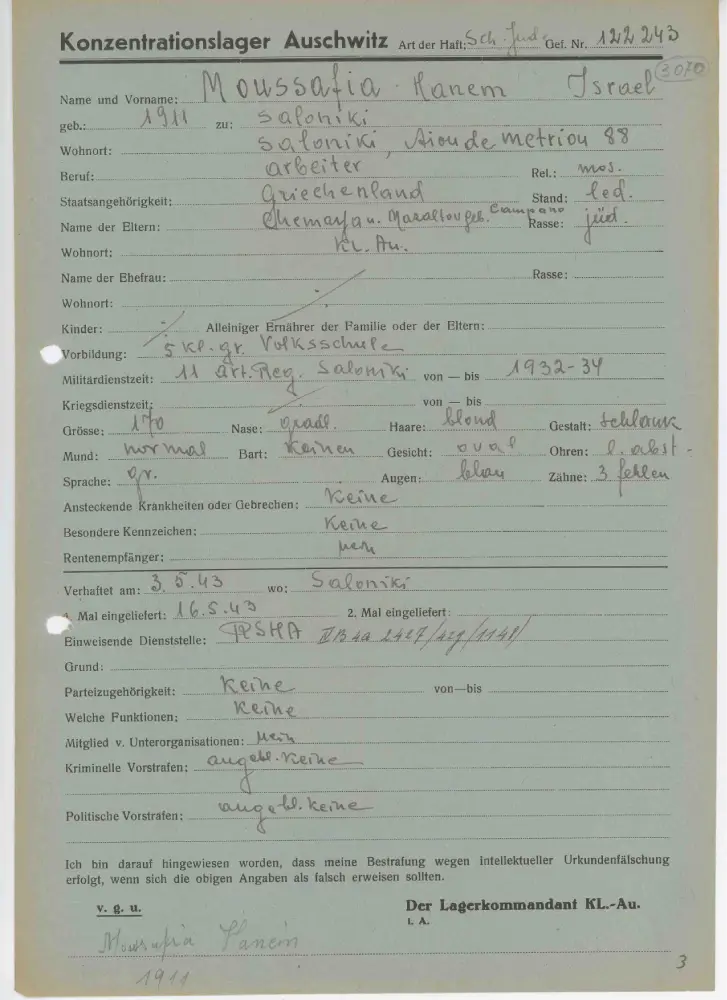 Konzentrationslager Auschwitz Art der Haft: Sch. Jude Gef. Nr. 122 243
3070
Name und Vorname: Moussafia - Hanem Israel
geb.: 1911 zu: Saloniki
Wohnort: Saloniki, metriou 88
Beruf: arbeiter Rel.: mos.
Staatsangehörigkeit: Griechenland Stand: led.
Name der Eltern: u. geb. Campano Rasse: jüd.
Wohnort: KL. Au.
Name der Ehefrau: Rasse:
Wohnort:
Kinder: Alleiniger Ernährer der Familie oder der Eltern:
Vorbildung: 5 Kl. gr. Volksschule
Militärdienstzeit: 11 Art. Reg. Saloniki von — bis 1932-34
Kriegsdienstzeit: von — bis
Grösse: 170 Nase: gradl. Haare: blond Gestalt: schlank
Mund: normal Bart: keinen Gesicht: oval Ohren: l. abst.
Sprache: gr. Augen: blau Zähne: 3 fehlen
Ansteckende Krankheiten oder Gebrechen: Keine
Besondere Kennzeichen: Keine
Rentenempfänger: nein
Verhaftet am: 3. 5. 43 wo: Saloniki
1. Mal eingeliefert: 16. 5. 43 2. Mal eingeliefert:
Einweisende Dienststelle: RSHA IV B 4a 2427/42g/1148/
Grund:
Parteizugehörigkeit: Keine von—bis
Welche Funktionen: Keine
Mitglied v. Unterorganisationen: Nein
Kriminelle Vorstrafen: angebl. Keine
Politische Vorstrafen: angebl. Keine
Ich bin darauf hingewiesen worden, dass meine Bestrafung wegen intellektueller Urkundenfälschung
erfolgt, wenn sich die obigen Angaben als falsch erweisen sollten.
v. g. u. Der Lagerkommandant KL.-Au.
I. A.
Moussafia Hanem
1911
3